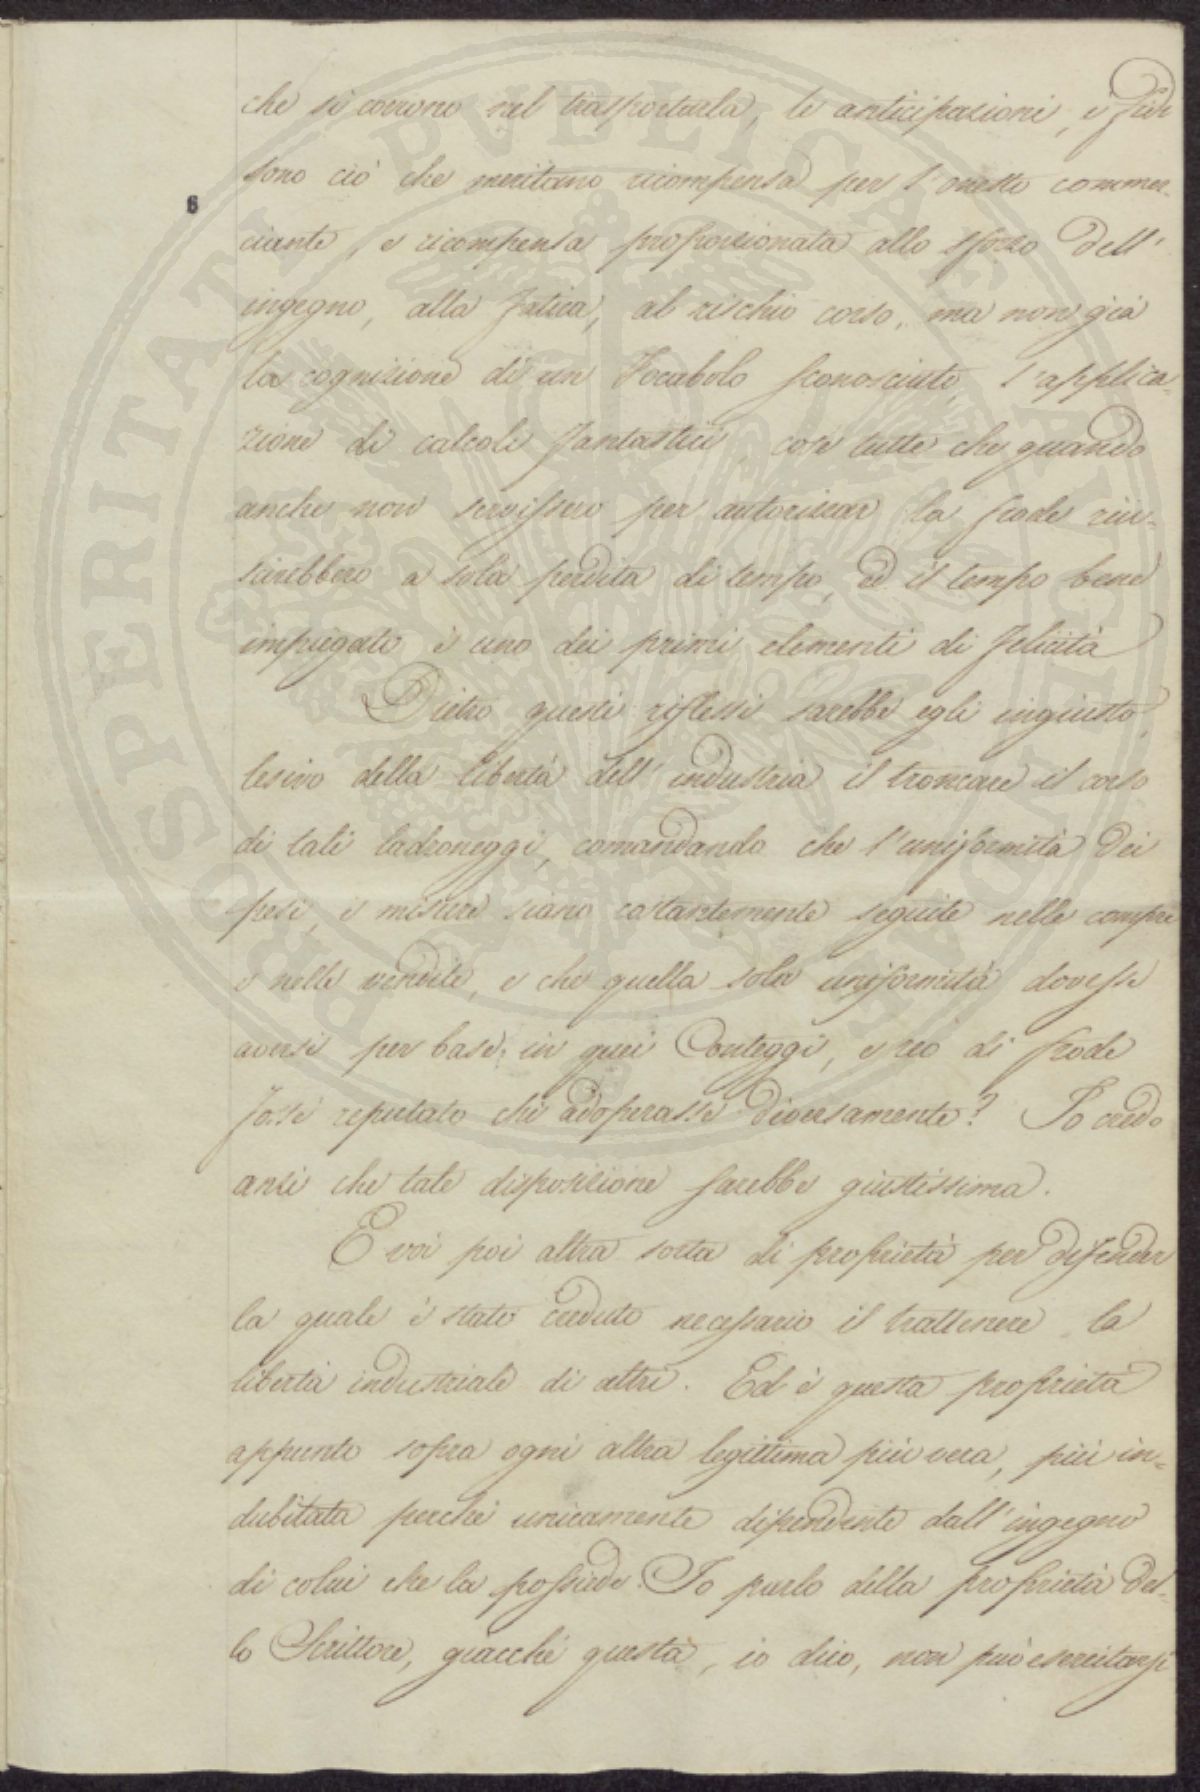 che si corrono nel trasportarla, le anticipazioni, e fidi
sono ciò che meritano ricompensa per l'onesto commer-
6
ciante, e ricompensa proporzionata allo sforzo dell'
ingegno, alla fatica, al rischio corso, ma non già
la cognizione di un Vocabolo sconosciuto, l'applica-
zione di calcoli fantastici, cose tutte che quando
anche non servissero per autorizzar la frode riu-
scirebbero a sola perdita di tempo, ed il tempo bene
impiegato è uno dei primi elementi di felicità
Dietro questi riflessi sarebbe egli ingiusto,
lesivo della libertà dell'industria il troncare il corso
di tali ladroneggi, comandando che l'uniformità dei
pesi, e misure siano costantemente seguite nelle compre
e nelle vendite, e che quella sola uniformità dovesse
aversi per base in quei Conteggi, e reo di frode
fosse reputato chi adoperasse diversamente? Io credo
anzi che tale disposizione sarebbe giustissima.
E voi poi altra sorta di proprietà per difender
la quale è stato creduto necessario il trattenere la
libertà industriale di altri. Ed è questa proprietà
appunto sopra ogni altra legittima più vera, più in-
dubitata perchè unicamente dipendente dall'ingegno
di colui che la possiede. Io parlo della proprietà del-
lo Scrittore, giacchè questa, io dico, non può esercitarsi
PROSPERITATI PVBLICAE AVGENDAE